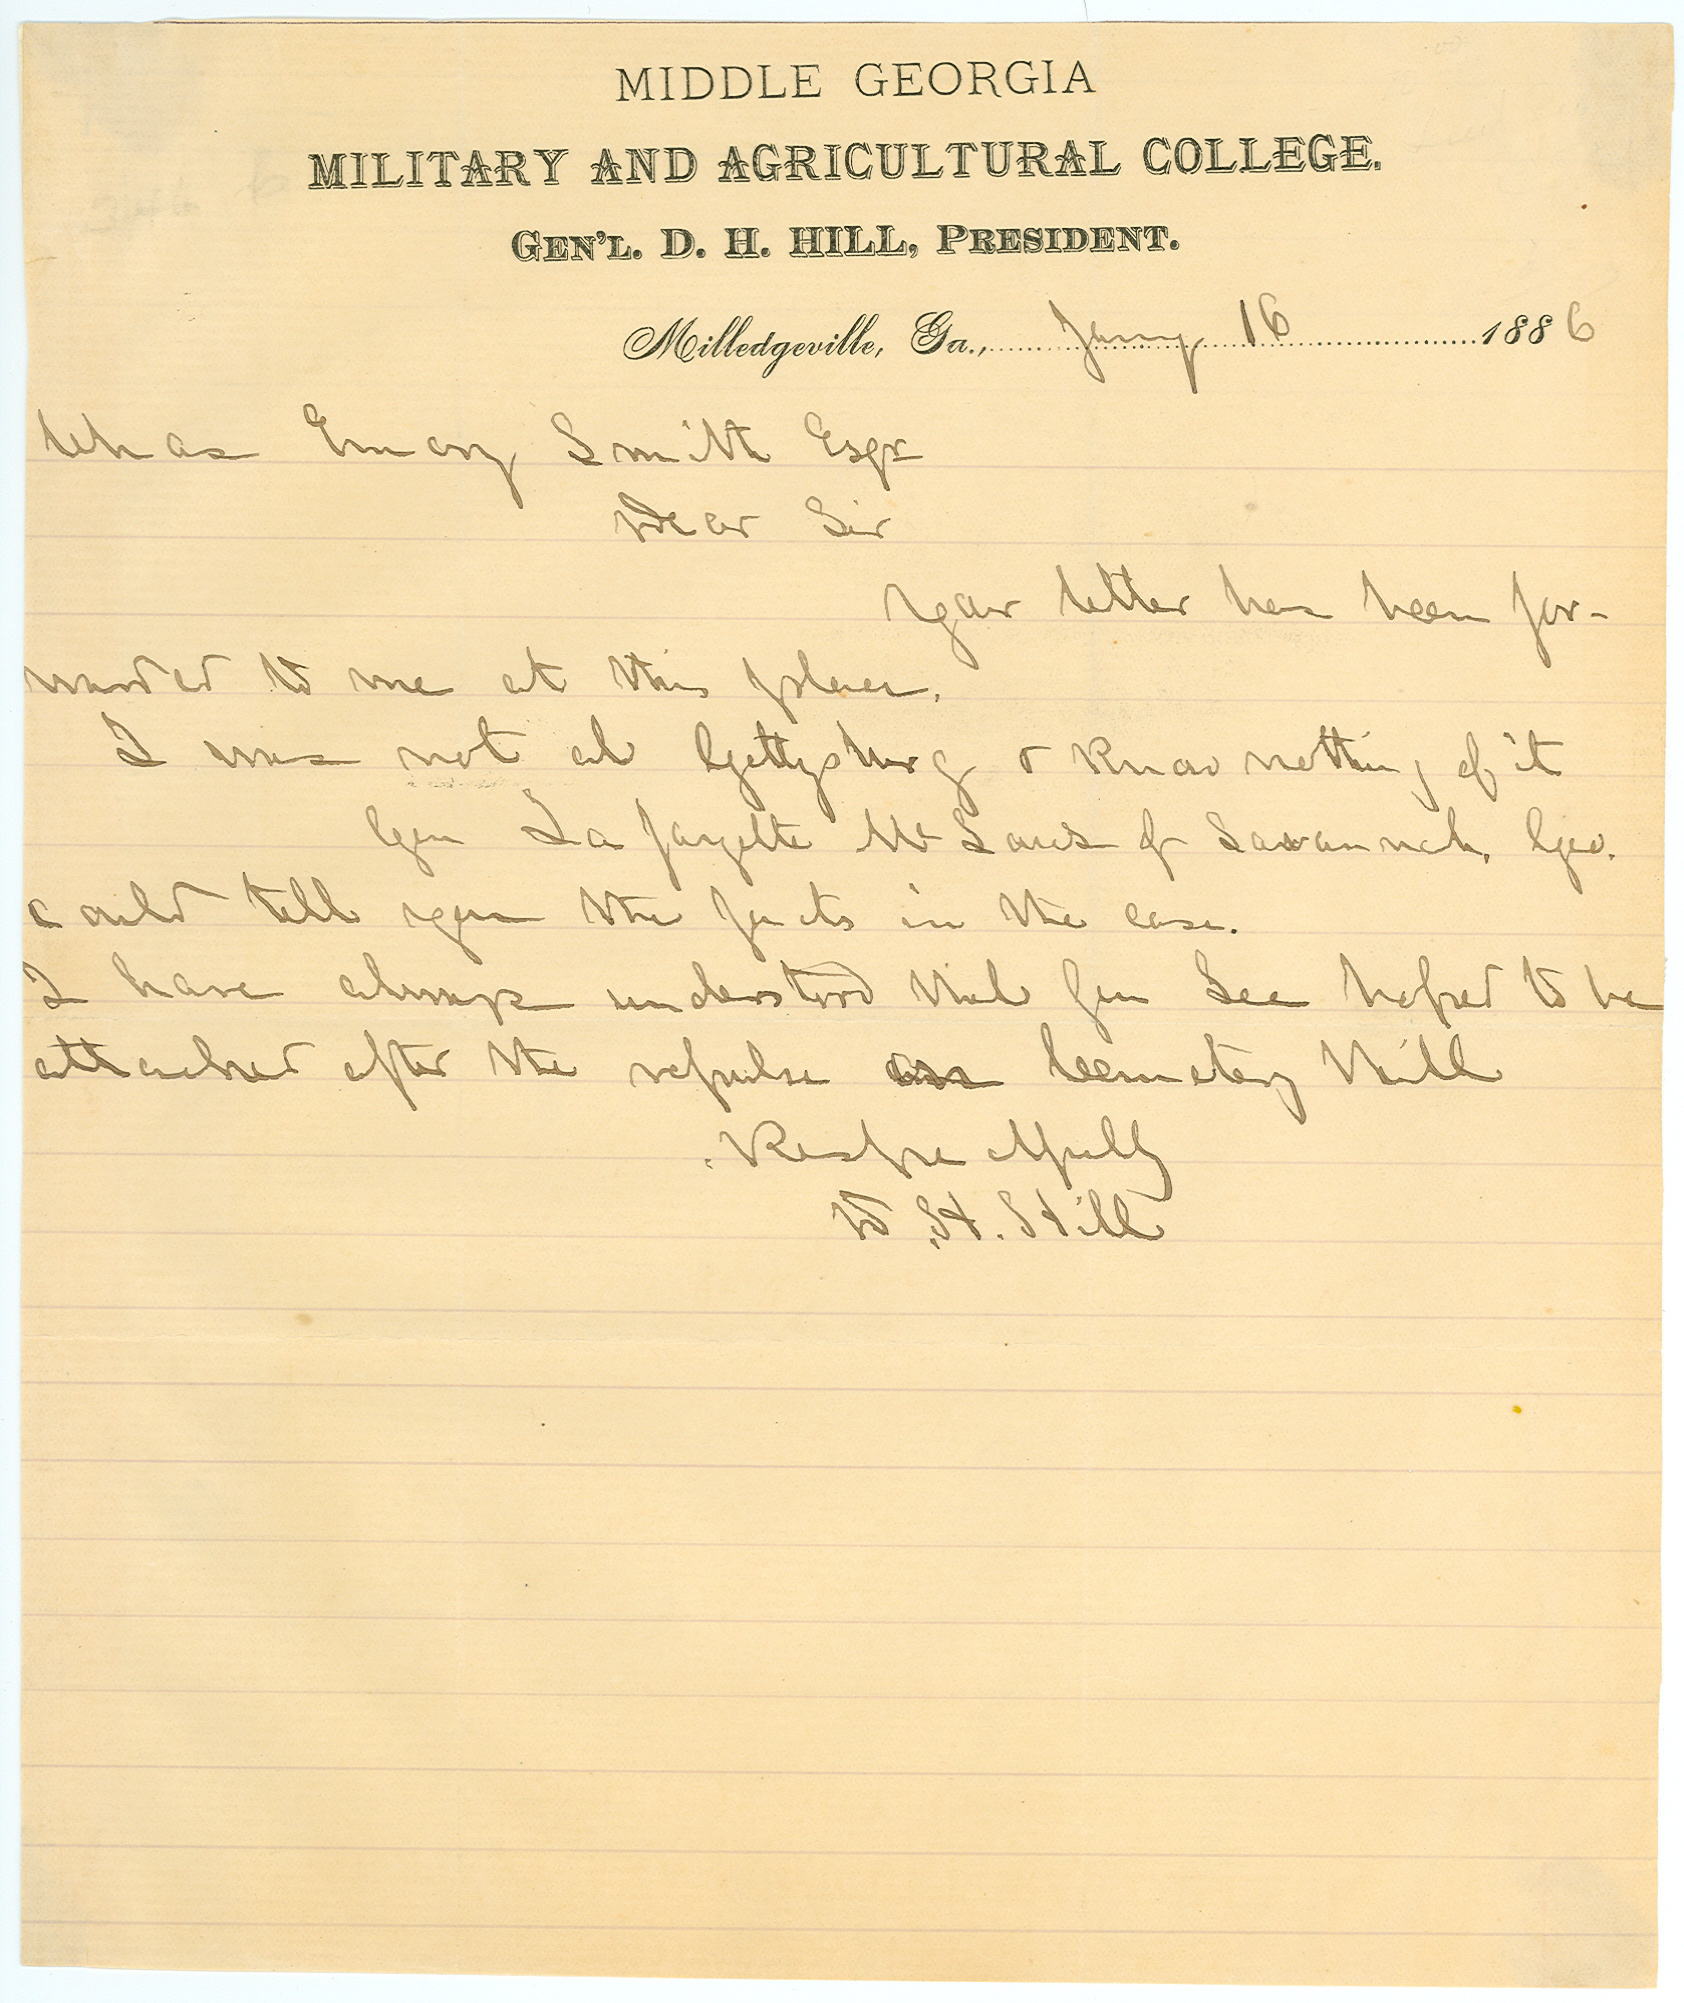 MIDDLE GEORGIA
MILITARY AND AGRICULTURAL COLLEGE.
GEN'L. D. H. HILL, PRESIDENT.
Milledgeville, Ga., Jany 16 1886
Chas Emory Smith Esqr
Dear Sir
Your letter has been for-
warded to me at this place.
I was not at Gettysburg & know nothing of it
Gen La fayette McLaws of Savannah, Geo.
could tell you the facts in the case.
I have always understood that Gen Lee hoped to be
attacked after the repulse on Cemetery Hill
Respectfully
D. H. Hill